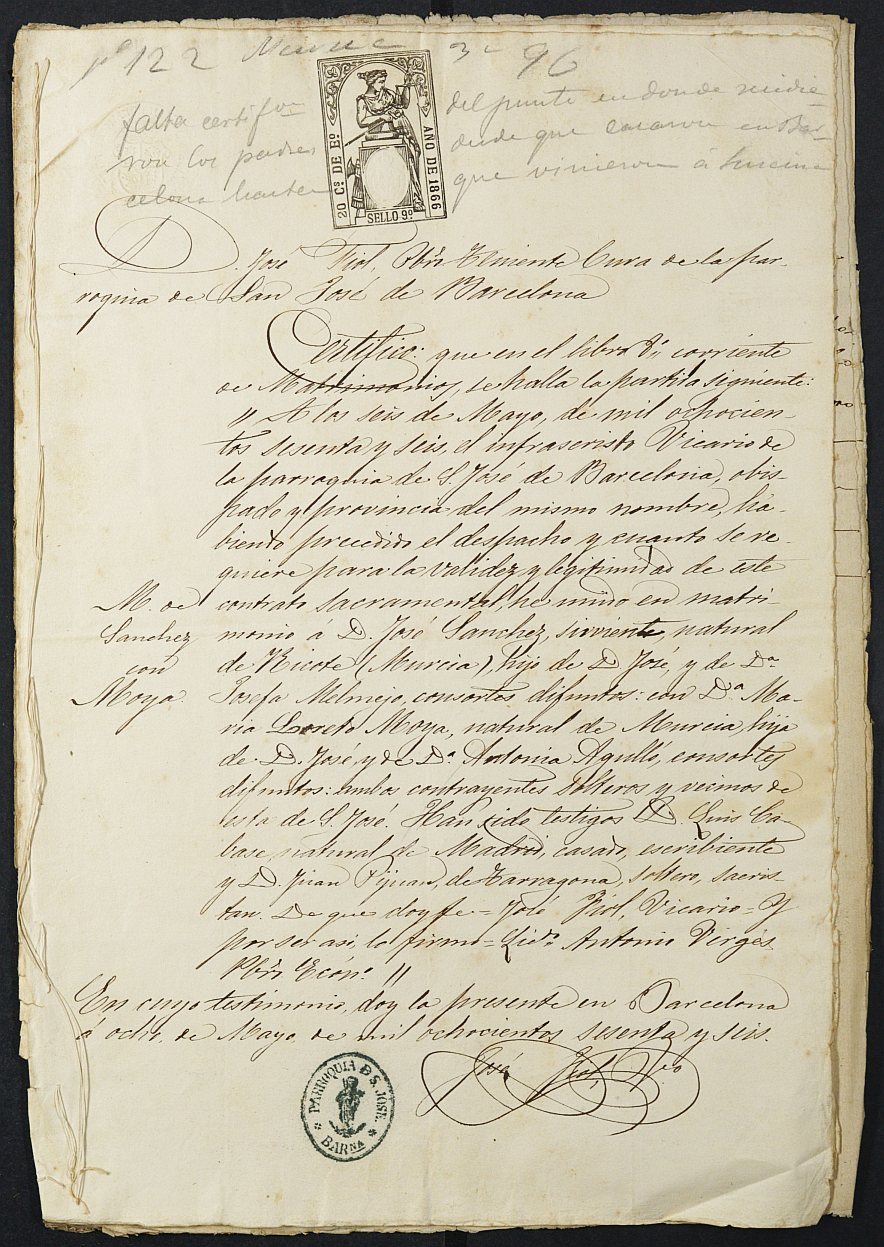 122 96
falta certifon del punto en donde residie-
ron los padres desde que casaron en Bar-
celona hasta que vinieron á Murcia
20 Cs DE Eo
AÑO DE 1866
SELLO 9º
D. José Fiol, Pbro. Teniente Cura de la par-
roquia de San José de Barcelona
Certifico: que en el libro 8º corriente
de Matrimonios, se halla la partida siguiente:
" A los seis de Mayo, de mil ochocien-
tos sesenta y seis, el infrascristo Vicario de
la parroquia de S. José de Barcelona, obis-
pado y provincia del mismo nombre, ha-
biendo precedido el despacho y cuanto se re-
quiere para la validez y legitimidad de este
M. de
Sanchez
con
Moya.
contrato sacramental, he unido en matri-
monio á D. José Sanchez, sirviente, natural
de Ricote (Murcia), hijo de D. José, y de Dª
Josefa Melmejo, consortes difuntos: con Dª Ma-
ria Loreto Moya, natural de Murcia, hija
de D. José y de Dª Antonia Agulló, consortes
difuntos: ambos contrayentes solteros y vecinos de
esta de S. José. Han sido testigos D. Luis Ca-
base, natural de Madrid, casado, escribiente
y D. Juan Pijuan, de Tarragona, soltero, sacris-
tan. De que doy fe = José Fiol, Vicario = Y
por ser asi, lo firmo = Licdo. Antonio Vergés
Pbro. Ecóno. "
En cuyo testimonio, doy la presente en Barcelona
á ocho, de Mayo, de mil ochocientos sesenta y seis.
José Fiol, Pbro
PARROQUIA D S. JOSE.
BARNA